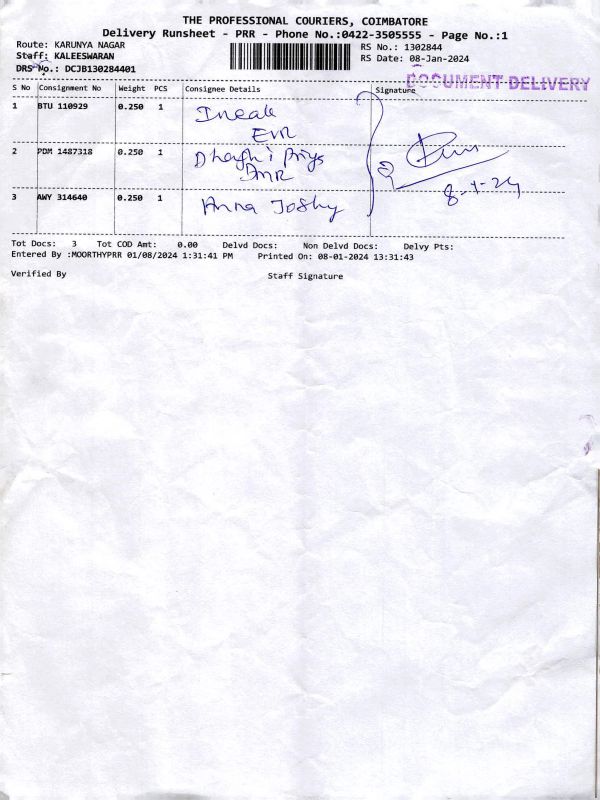 THE PROFESSIONAL COURIERS, COIMBATORE
Delivery Runsheet - PRR - Phone No.:0422-3505555 - Page No.:1
Route: KARUNYA NAGAR
RS No.: 1302844
Staff: KALEESWARAN
RS Date: 08-Jan-2024
DRS No.: DCJB130284401
DOCUMENT DELIVERY
S No Consignment No Weight PCS Consignee Details Signature
1 BTU 110929 0.250 1
EVR
2 PDM 1487318 0.250 1
3 AWY 314640 0.250 1 Anna Joshy
Tot Docs: 3 Tot COD Amt: 0.00 Delvd Docs: Non Delvd Docs: Delvy Pts:
Entered By :MOORTHYPRR 01/08/2024 1:31:41 PM Printed On: 08-01-2024 13:31:43
Verified By Staff Signature